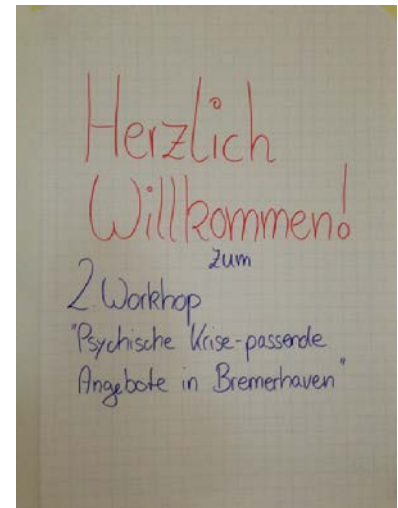 Herzlich
Willkommen!
zum
2. Workhop
"Psychische Krise-passende
Angebote in Bremerhaven"